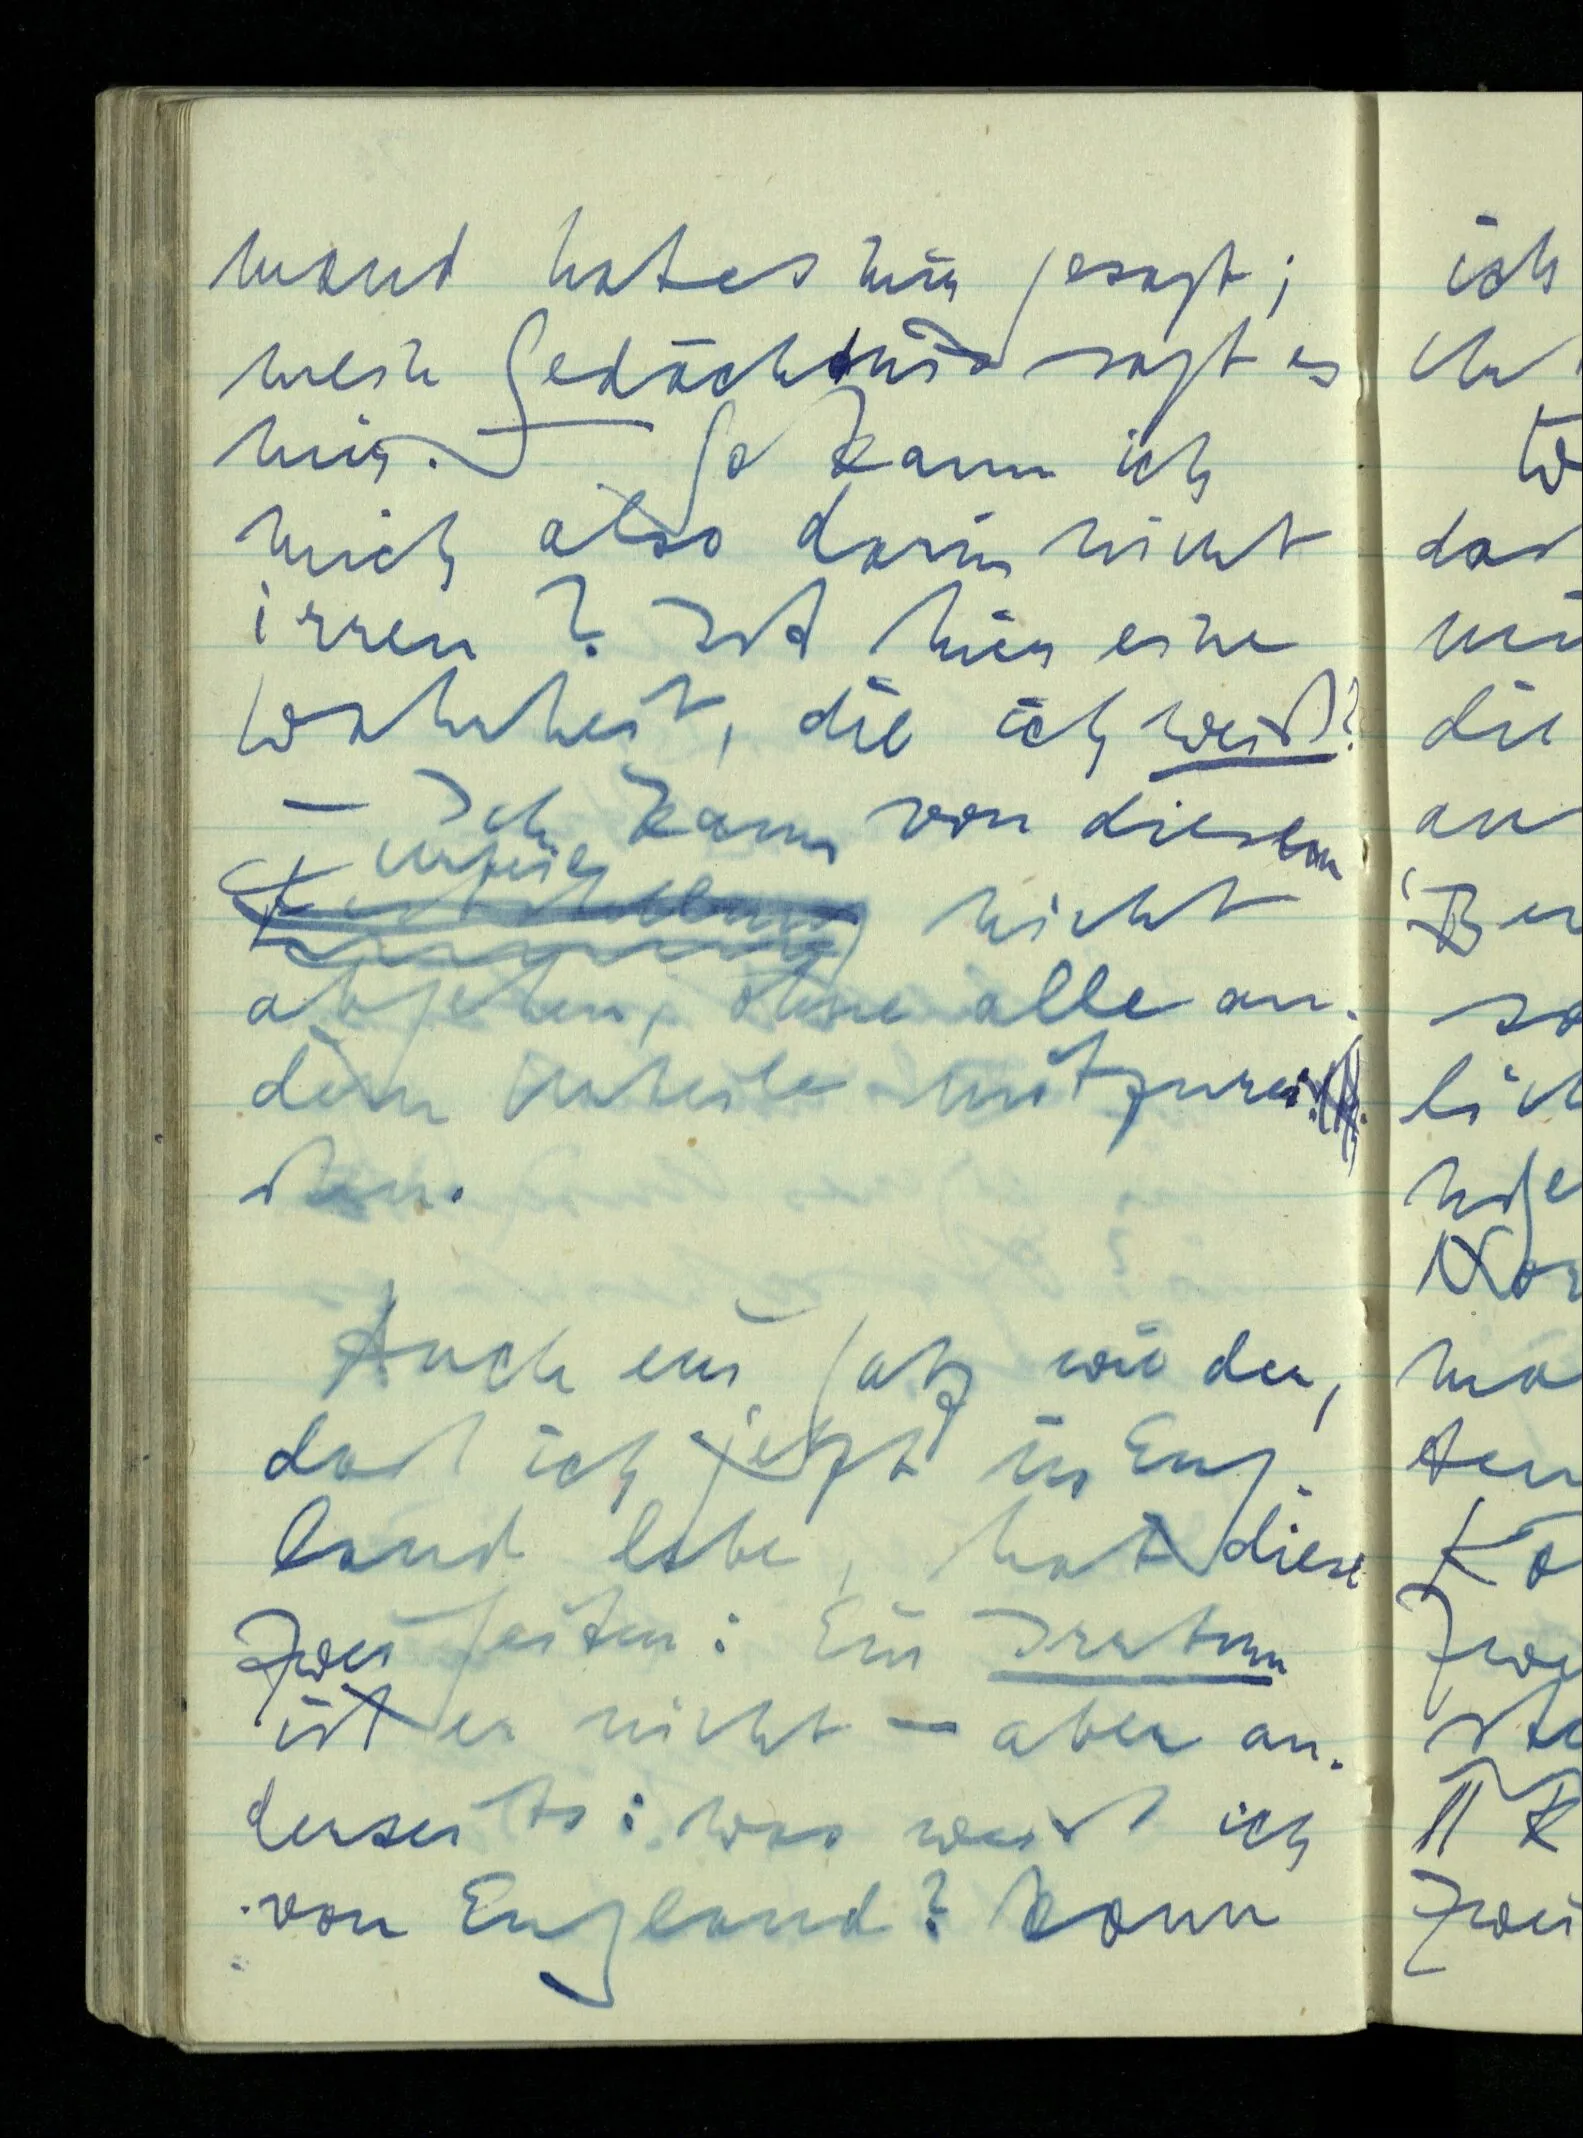 mand hat es mir gesagt;
mein Gedächtnis sagt es
mir. – So kann ich
mich also darin nicht
irren? Ist hier eine
Wahrheit, die ich weiß?
– Ich kann von diesem
Urteil
nicht
abgehen, ohne alle an-
dern Urteile mitzurei-
ßen.
Auch ein Satz wie der,
daß ich jetzt in Eng-
land lebe, hat diese
zwei Seiten: Ein Irrtum
ist er nicht – aber an-
derseits: was weiß ich
von England? Kann
ich
daß
die
an
Zwei